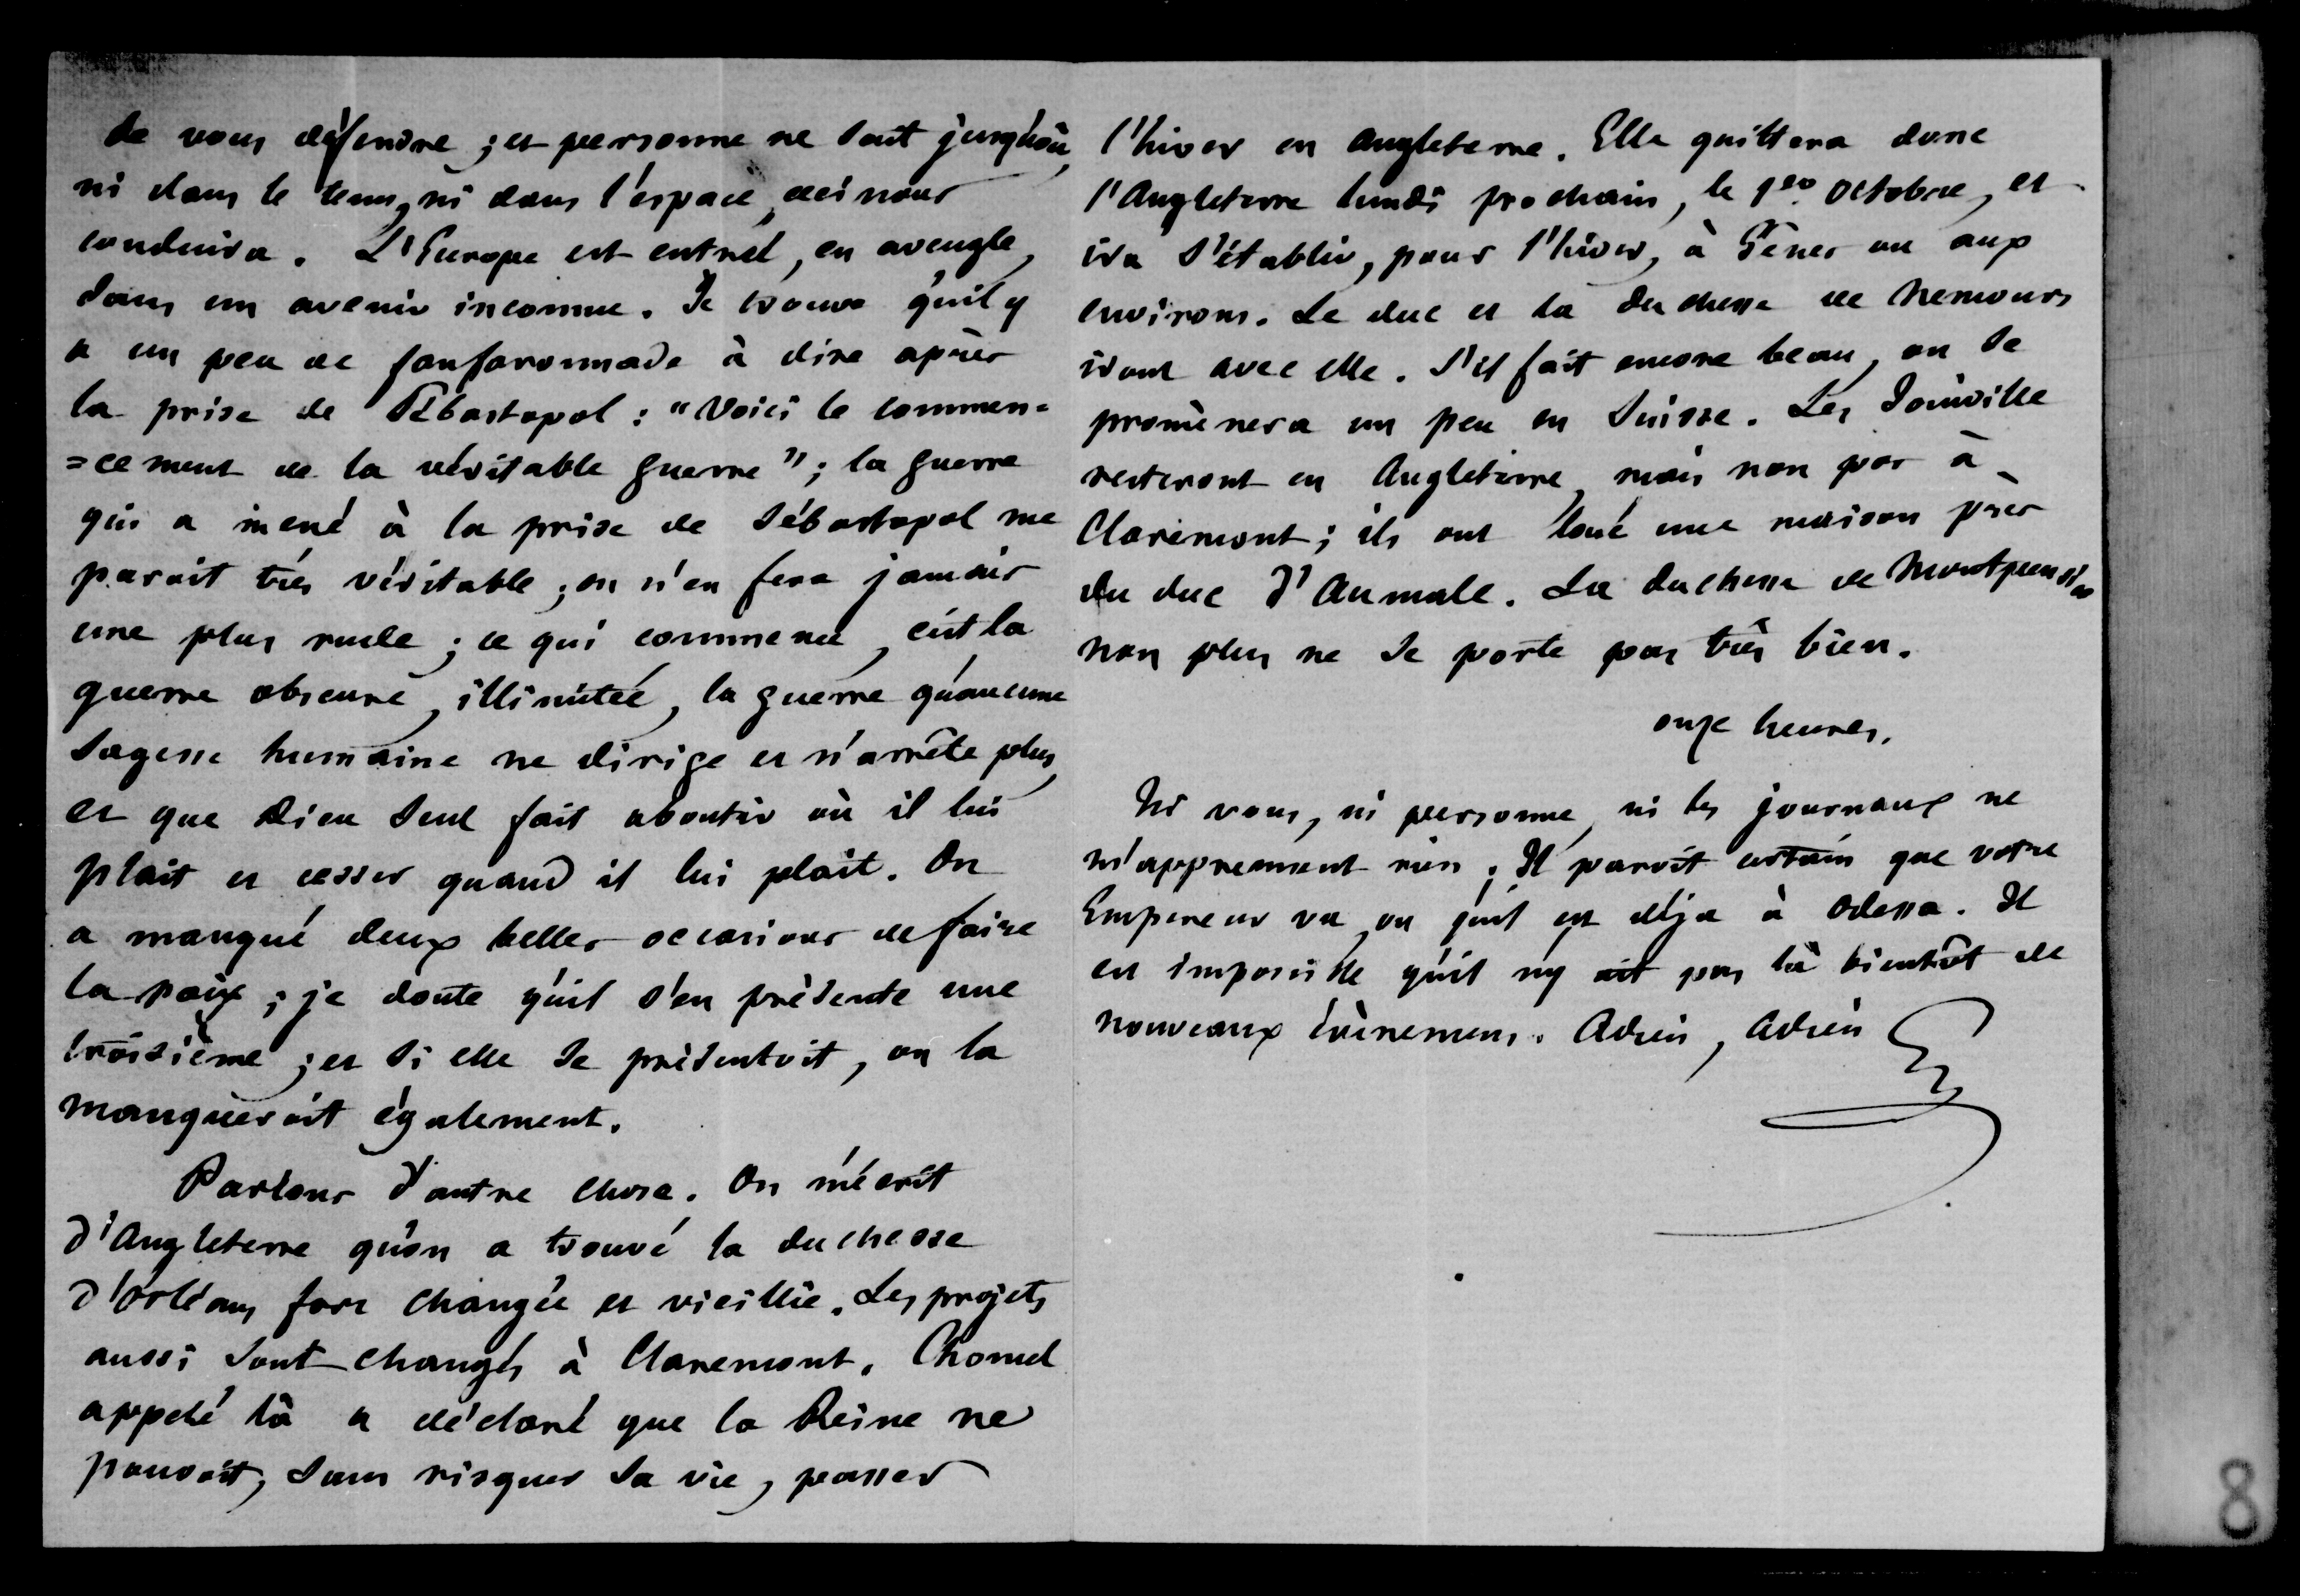 de vous défendre ; et personne ne sait jusqu'où,
ni dans le tems, ni dans l'espace, ceci nous
conduira. L'Europe est entrée, en aveugle,
dans un avenir inconnu. Je trouve qu'il y
a un peu de fanfaronnade à dire après
la prise de Sébastopol : "Voici le commen=
=cement de la véritable guerre" ; la guerre
qui a mené à la prise de Sébastopol me
paroit très véritable ; on n'en fera jamais
une plus rude ; ce qui commence, c'est la
guerre obscure, illimitée, la guerre qu'aucune
sagesse humaine ne dirige et n'arrête plus,
et que Dieu seul fait aboutir où il lui
plait et cesser quand il lui plait. On
a manqué deux belles occasions de faire
la paix ; je doute qu'il s'en présente une
troisième ; et si elle se présentoit, on la
manqueroit également.
Parlons d'autre chose. On m'écrit
d'Angleterre qu'on a trouvé la duchesse
d'Orléans fort changée et vieillie. Les projets
aussi sont changés à Claremont. Chomel
appelé là a déclaré que la Reine ne
pouvoit, sans risquer sa vie, passer
l'hiver en Angleterre. Elle quittera donc
l'Angleterre lundi prochain, le 1er octobre, et
ira s'établir, pour l'hiver, à Gênes ou aux
environs. Le duc et la duchesse de Nemours
iront avec elle. S'il fait encore beau, on se
promènera un peu en Suisse. Les Joinville
resteront en Angleterre, mais non pas à
Claremont ; ils ont loué une maison près
du duc d'Aumale. La duchesse de Montpensier
non plus ne se porte pas très bien.
onze heures.
Ni vous, ni personne, ni les journaux ne
m'apprennent rien. Il paroit certain que votre
Empereur va, ou qu'il est déja à Odessa. Il
est impossible qu'il n'y ait pas là bientôt de
nouveaux évènemens. Adieu, Adieu
8